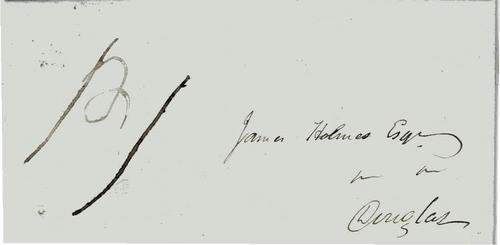 James Holmes Esqr
Douglas